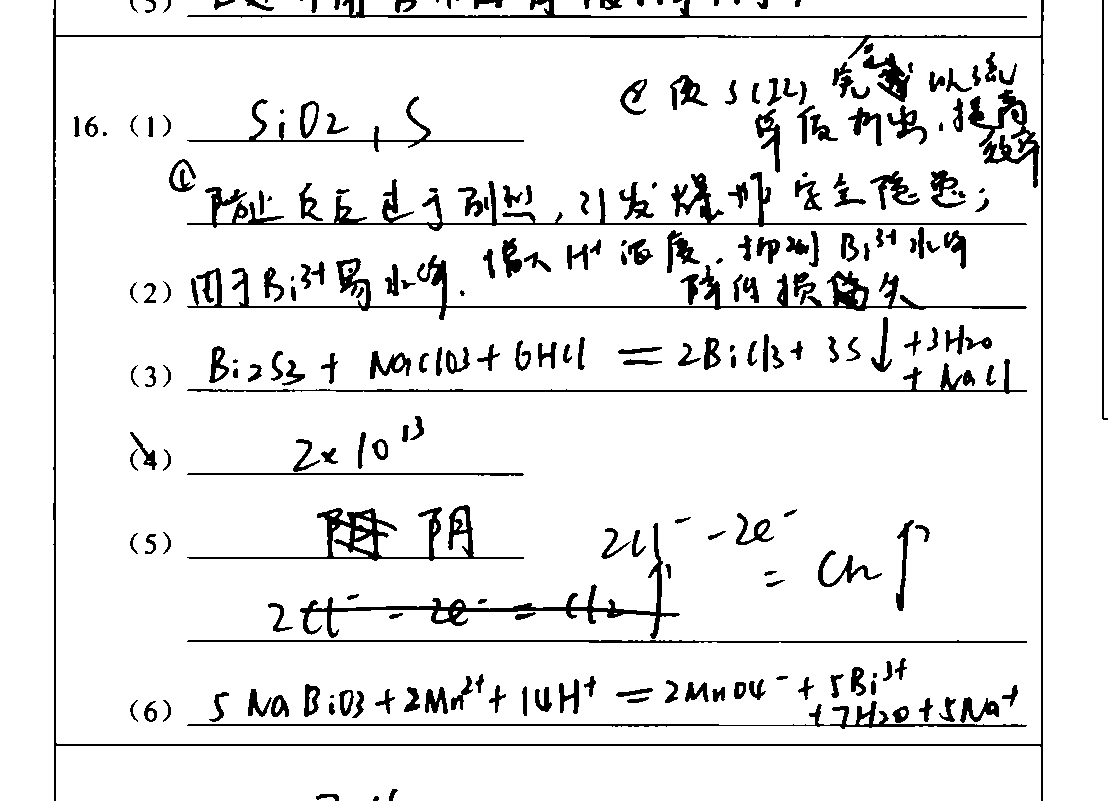 16. (1) SiO2, S
② 使 S(II) 完全以硫
单质析出，提高
效率
① 防止反应过于剧烈，引发爆炸安全隐患；
(2) 由于Bi³⁺易水解. 增大H⁺浓度. 抑制Bi³⁺水解
降低损失
(3) Bi2S3 + NaClO3 + 6HCl = 2BiCl3 + 3S↓ +3H2O
+ NaCl
(4) 2×10¹³
(5) 阴
2Cl⁻ -2e⁻
= Cl2↑
2Cl⁻ - 2e⁻ = Cl2↑
(6) 5NaBiO3 + 2Mn²⁺ + 14H⁺ = 2MnO4⁻ + 5Bi³⁺
+7H2O+5Na⁺